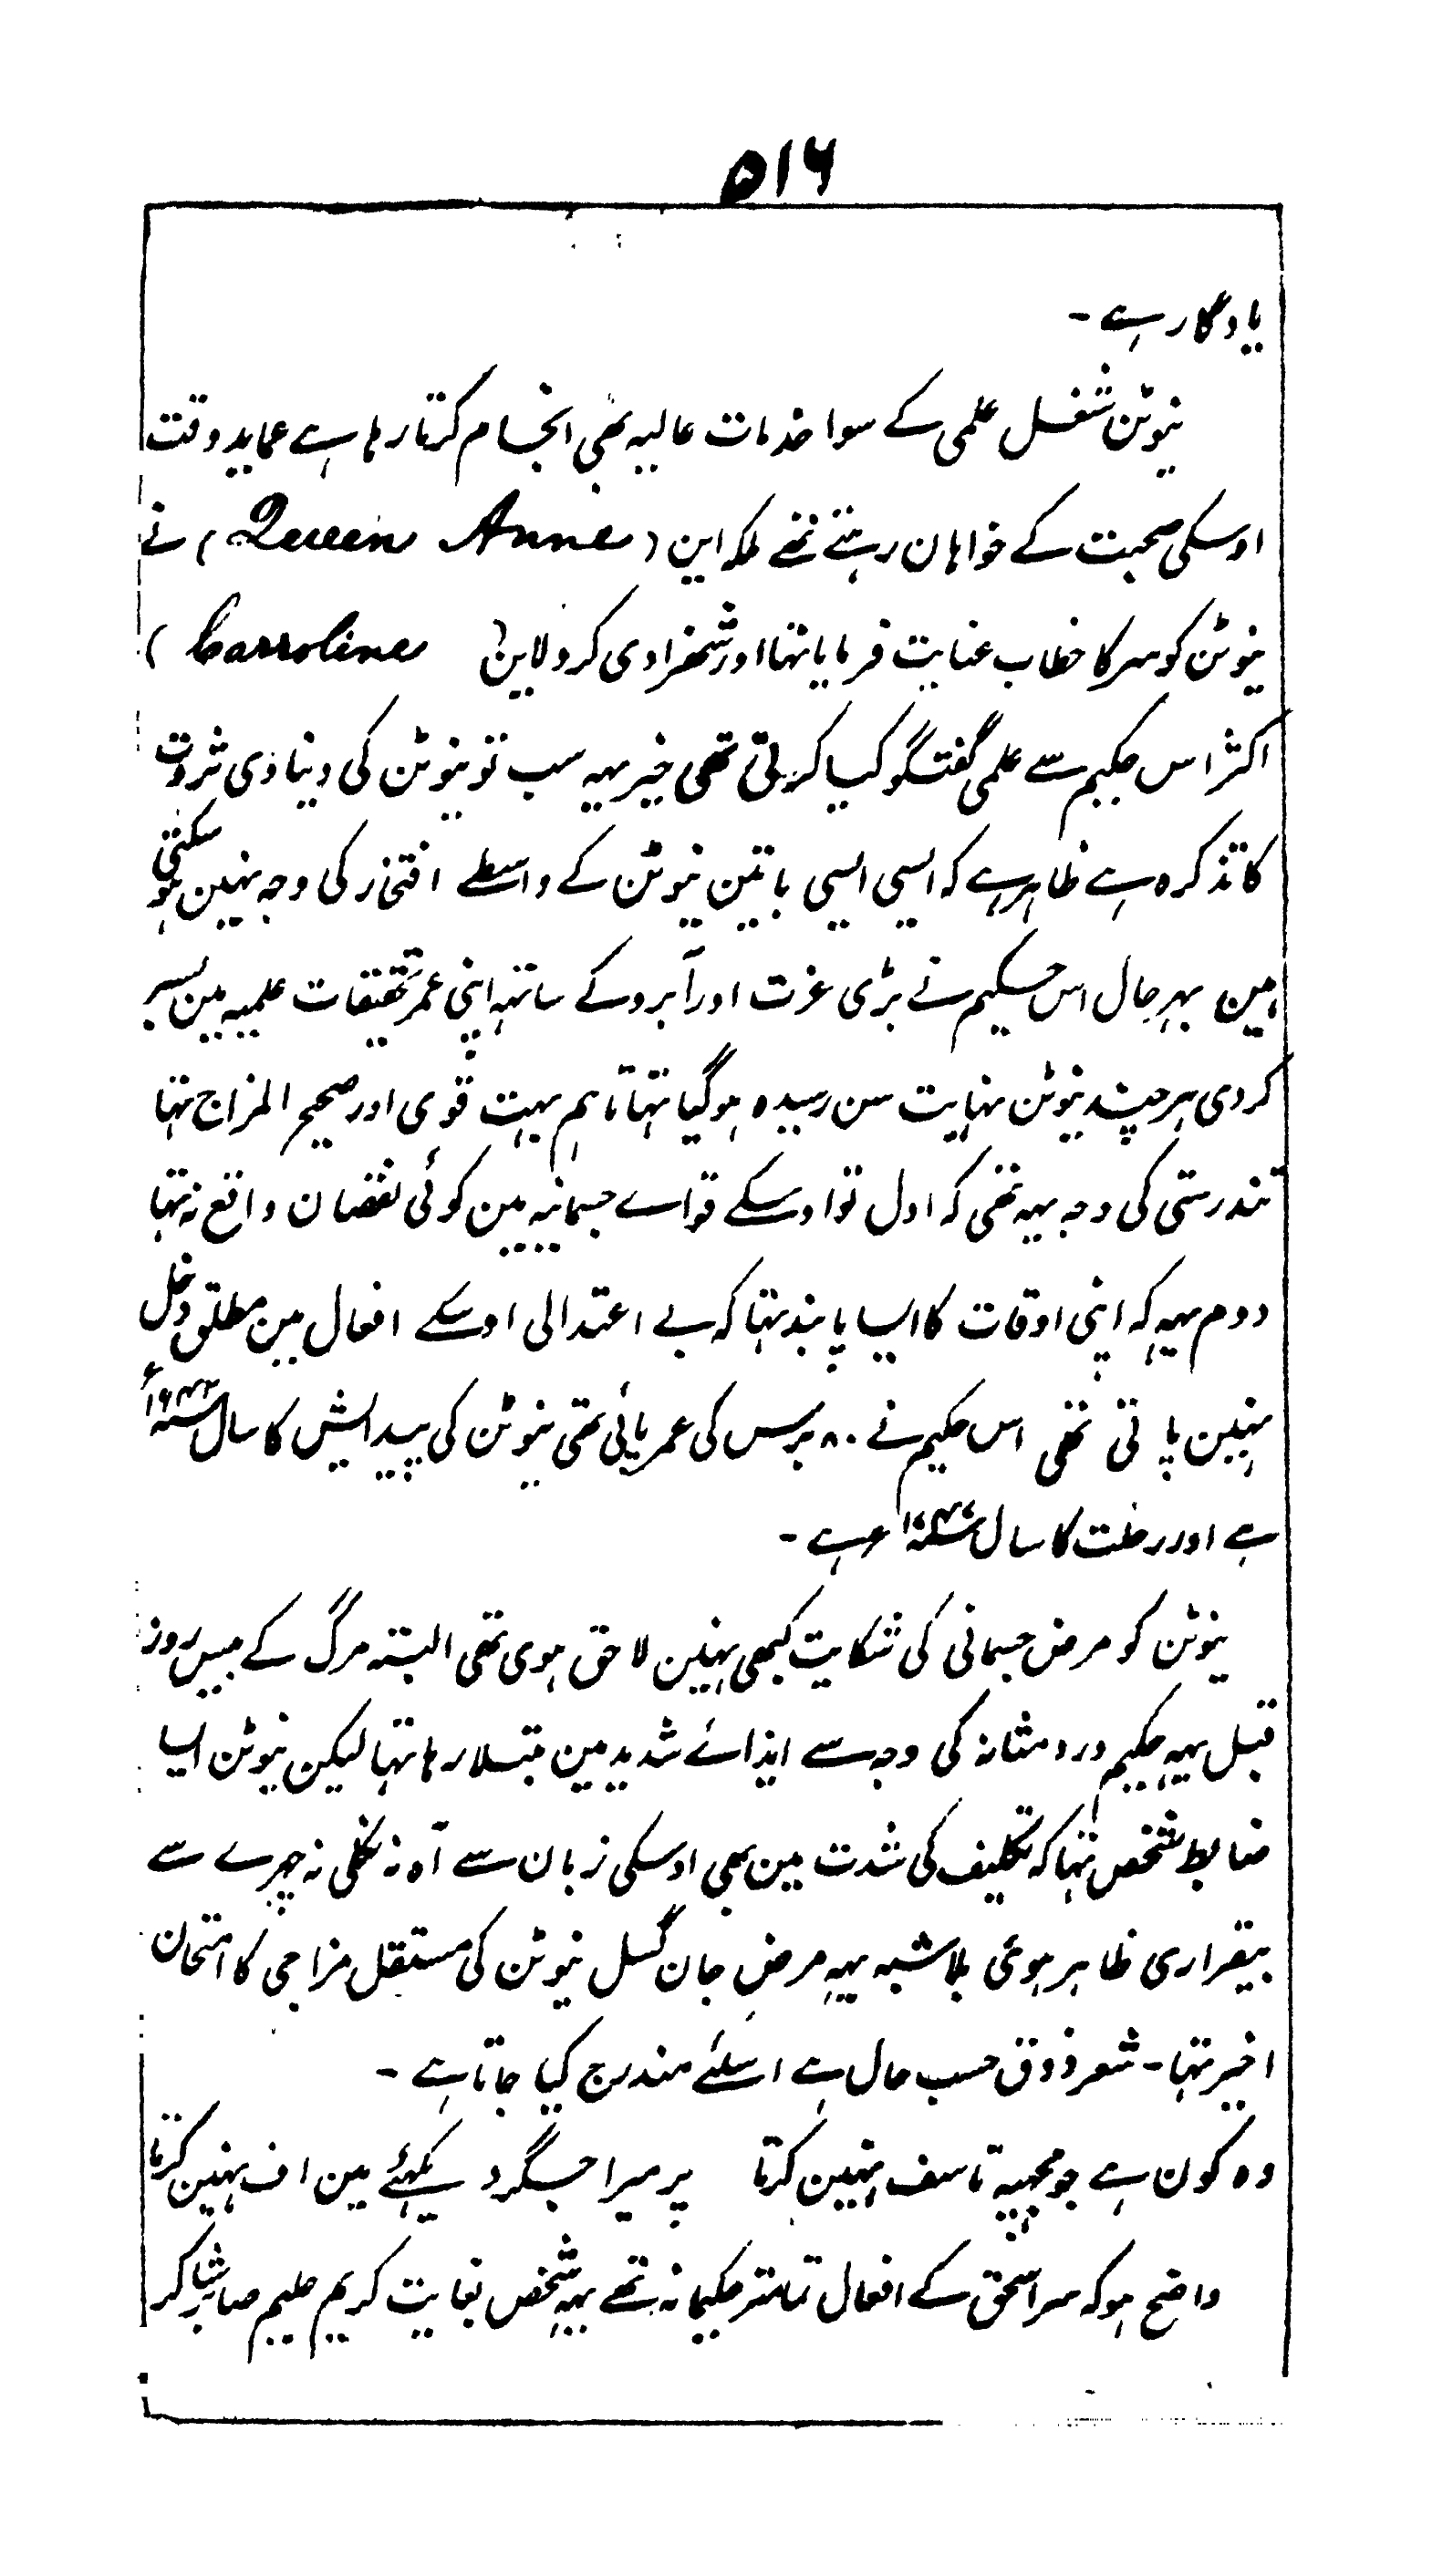 ۵۱۶
یادگار ہے -
نیوٹن شغل علمی کے سوا خدمات عالیہ بھی انجام کرتا رہا ہے عماید وقت
اوسکی صحبت کے خواہان رہتے تھے ملکہ این (Queen Anne) نے
نیوٹن کو سر کا خطاب عنایت فرمایا تہا اور شہزادی کرولاین (Carroline)
اکثر اس حکیم سے علمی گفتگو کیا کرتی تھی خیر یہہ سب تو نیوٹن کی دنیاوی ثروت
کا تذکرہ ہے ظاہر ہے کہ ایسی ایسی باتین نیوٹن کے واسطے افتخار کی وجہ نہین ہو سکتی
ہین بہر حال اس حکیم نے بڑی عزت اور آبرو کے ساتہہ اپنی عمر تحقیقات علمیہ مین بسر
کردی ہر چند نیوٹن نہایت سن رسیدہ ہوگیا تہا تاہم بہت قوی اور صحیح المزاج تہا
تندرستی کی وجہ یہہ تھی کہ اول تو اوسکے قواے جسمانیہ مین کوئی نقصان واقع نہ تہا
دوم یہہ کہ اپنی اوقات کا ایسا پابند تہا کہ بے اعتدالی اوسکے افعال مین مطلق دخل
نہین پاتی تھی اس حکیم نے ۸۰ برس کی عمر پائی تھی نیوٹن کی پیدایش کا سال ۱۶۴۲ء
ہے اور رحلت کا سال ۱۷۲۷ء ہے -
نیوٹن کو مرض جسمانی کی شکایت کبھی نہین لاحق ہوی تھی البتہ مرگ کے بیس روز
قبل یہہ حکیم درد مثانہ کی وجہ سے ایذائے شدید مین مبتلا رہا تہا لیکن نیوٹن ایسا
ضابط شخص تہا کہ تکلیف کی شدت مین بھی اوسکی زبان سے آہ نہ نکلی نہ چہرے سے
بیقراری ظاہر ہوئی بلا شبہ یہہ مرض جان گسل نیوٹن کی مستقل مزاجی کا امتحان
اخیر تہا - شعر ذوق حسب حال ہے اسلئے مندرج کیا جاتا ہے -
وہ کون ہے جو مجہپہ تاسف نہین کرتا پر میرا جگر دیکہئے مین اف نہین کرتا
واضح ہو کہ سر اسحق کے افعال تمامتر حکیمانہ تھے یہہ شخص بغایت کریم حلیم صابر شاکر